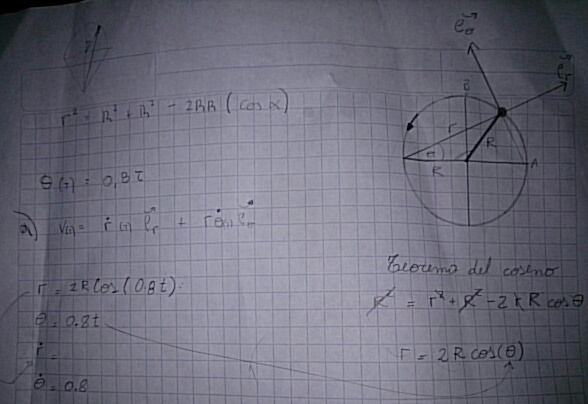 r² = R² + R² - 2RR (cos α)
θ(t) = 0,8t
a) v(t) = ṙ(t) e⃗r + r θ̇(t) e⃗
r = 2R cos (0.8t).
θ = 0.8t
ṙ =
θ̇ = 0.8
e⃗θ
e⃗r
B
r
R
θ
R
A
Teorema del coseno
R² = r² + R² - 2rR cos θ
r = 2R cos(θ)